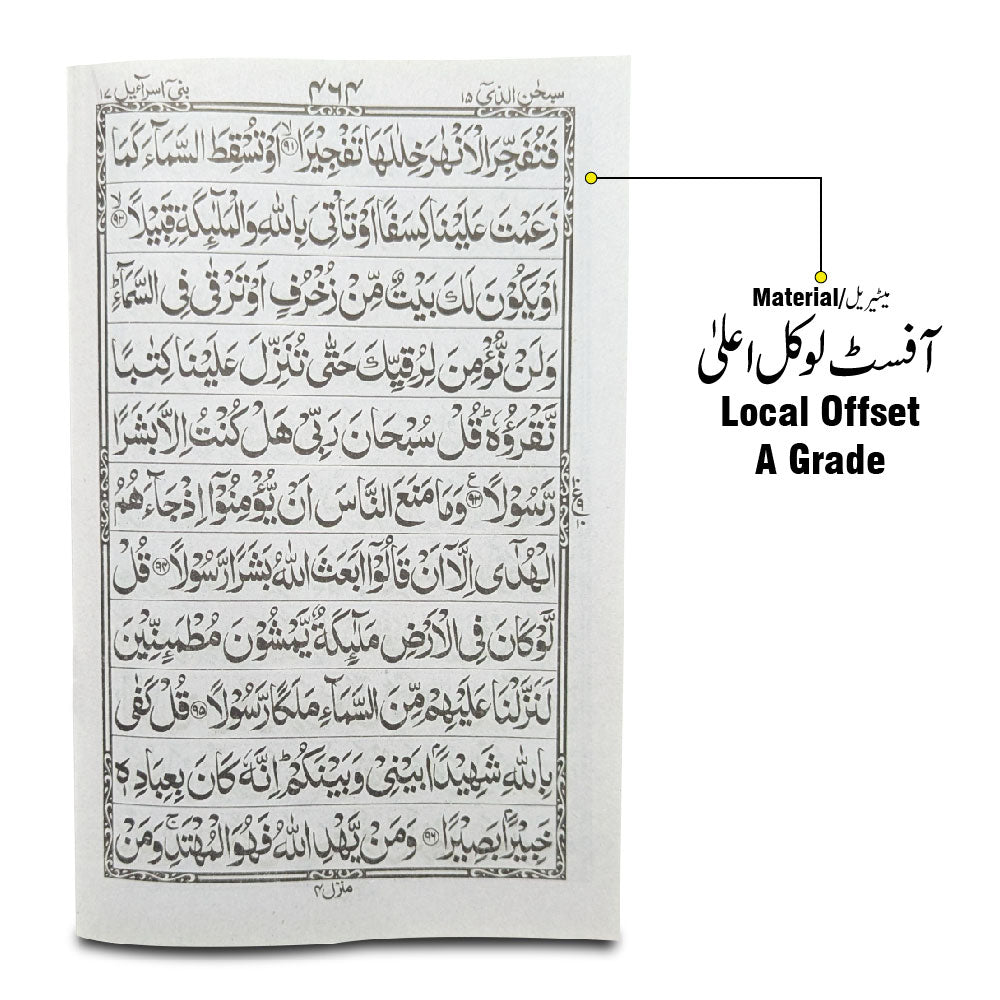 سبحٰن الذیٓ ۱۵ ۴۶۴ بنیٓ اسرآءیل ۱۷
فَتُفَجِّرَ الْاَنْهٰرَ خِلٰلَهَا تَفْجِيْرًا ۙ﴿۹۱﴾ اَوْ تُسْقِطَ السَّمَآءَ كَمَا
زَعَمْتَ عَلَيْنَا كِسَفًا اَوْ تَاْتِیَ بِاللّٰهِ وَالْمَلٰٓئِكَةِ قَبِيْلًا ۙ﴿۹۲﴾
اَوْ يَكُوْنَ لَكَ بَيْتٌ مِّنْ زُخْرُفٍ اَوْ تَرْقٰی فِی السَّمَآءِ ؕ
وَلَنْ نُّؤْمِنَ لِرُقِيِّكَ حَتّٰی تُنَزِّلَ عَلَيْنَا كِتٰبًا
نَّقْرَؤُهٗ ؕ قُلْ سُبْحَانَ رَبِّیْ هَلْ كُنْتُ اِلَّا بَشَرًا
رَّسُوْلًا ﴿۹۳﴾ ع وَمَا مَنَعَ النَّاسَ اَنْ يُّؤْمِنُوْۤا اِذْ جَآءَهُمُ
الْهُدٰۤی اِلَّاۤ اَنْ قَالُوْۤا اَبَعَثَ اللّٰهُ بَشَرًا رَّسُوْلًا ﴿۹۴﴾ قُلْ
لَّوْ كَانَ فِی الْاَرْضِ مَلٰٓئِكَةٌ يَّمْشُوْنَ مُطْمَئِنِّيْنَ
لَنَزَّلْنَا عَلَيْهِمْ مِّنَ السَّمَآءِ مَلَكًا رَّسُوْلًا ﴿۹۵﴾ قُلْ كَفٰی
بِاللّٰهِ شَهِيْدًۢا بَيْنِیْ وَبَيْنَكُمْ ؕ اِنَّهٗ كَانَ بِعِبَادِهٖ
خَبِيْرًۢا بَصِيْرًا ﴿۹۶﴾ وَمَنْ يَّهْدِ اللّٰهُ فَهُوَ الْمُهْتَدِ ۚ وَمَنْ
منزل ۴
Material/میٹیریل
آفسٹ لوکل اعلیٰ
Local Offset
A Grade